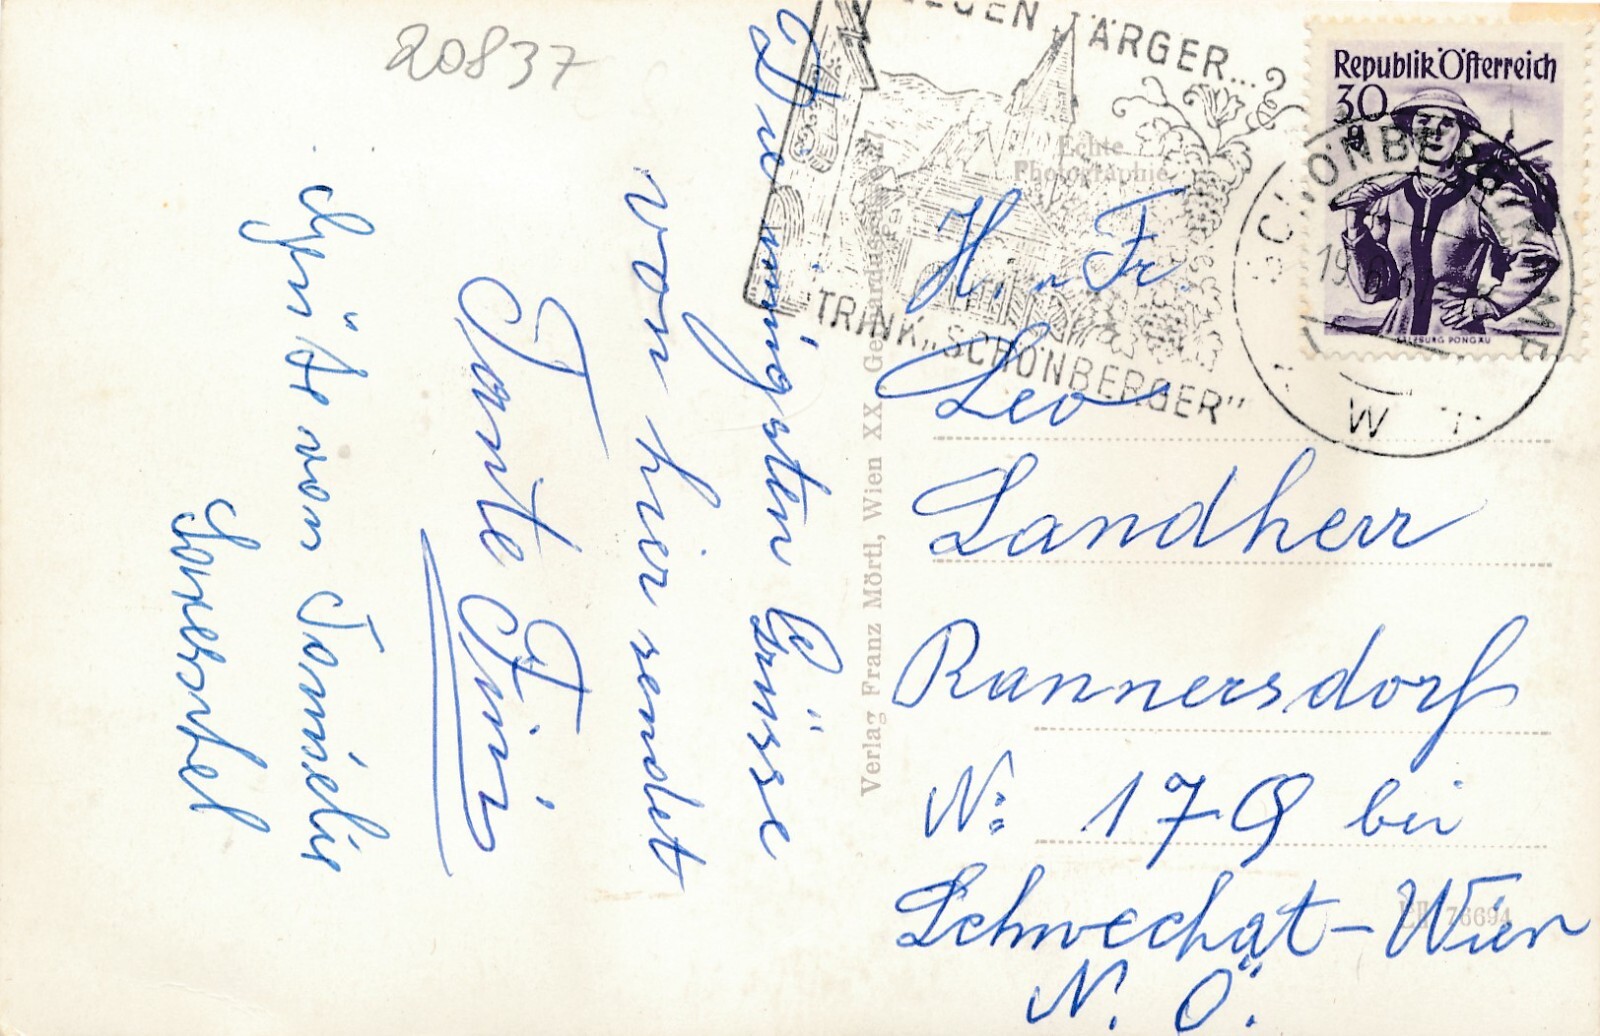 20837
Die innigsten Grüsse
von hier sendet
Tante Fini
Grüße von Familie
GEGEN ÄRGER...?
TRINK „SCHÖNBERGER"
SCHÖNBERG
KAMP
Republik Österreich
30
SALZBURG PONGAU
Echte
Photographie
Verlag Franz Mörtl, Wien XX., Gerhardusgasse 27
H. u Fr.
Leo
Landherr
Rannersdorf
N: 179 bei
Schwechat-Wien
N. Ö.
76694